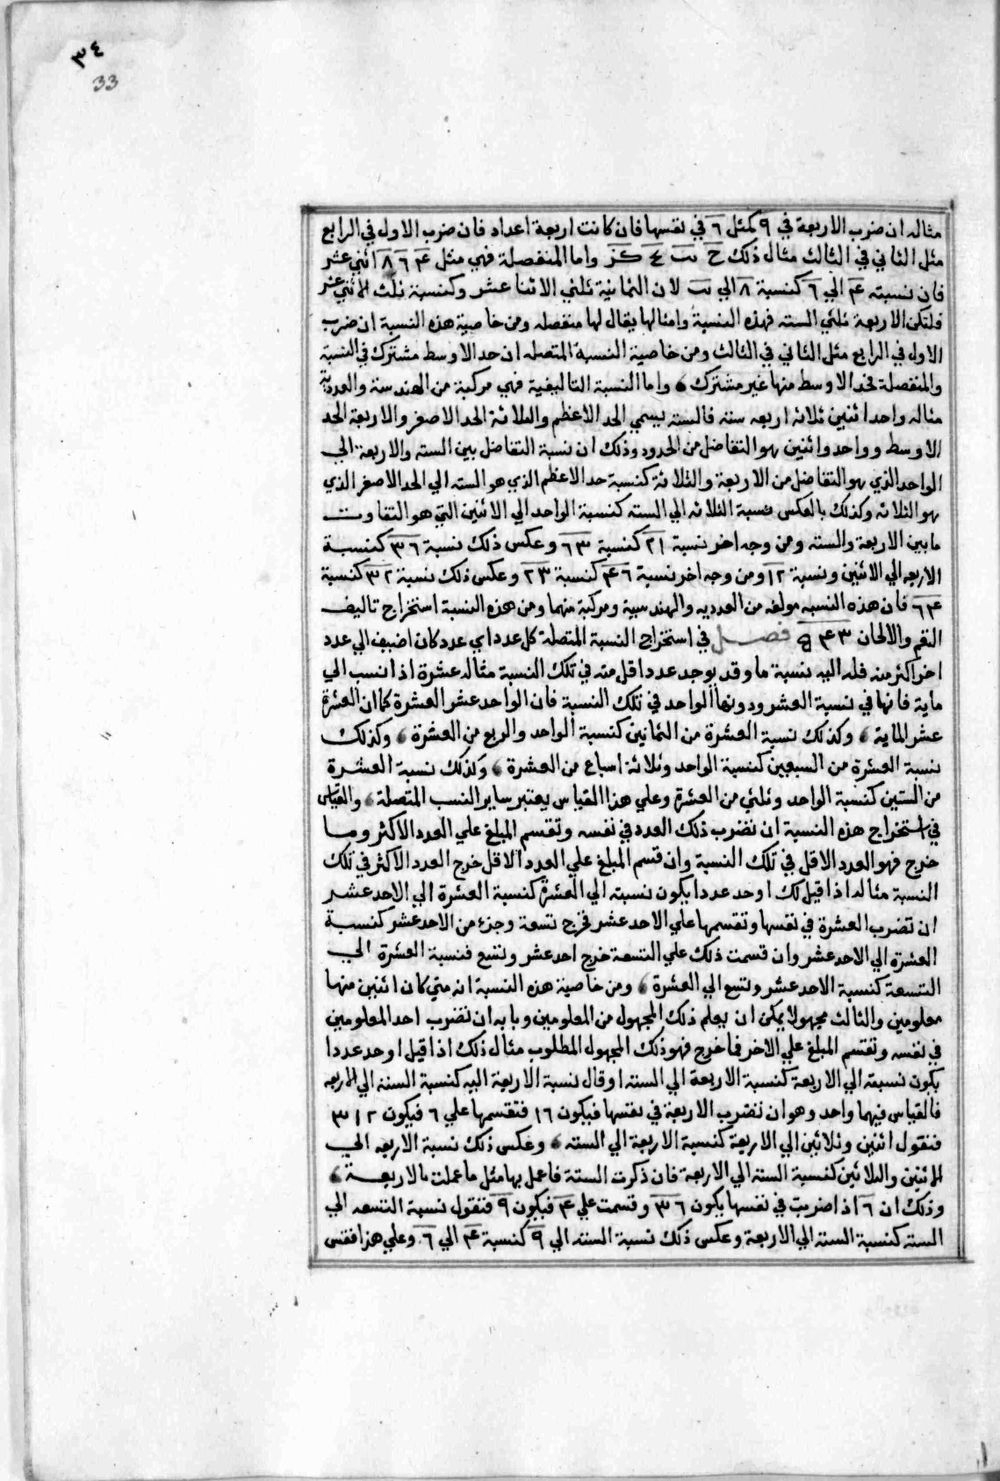 ٣٤
33
مثاله ان ضرب الاربعة في ٩ كمثل ٦ في نفسها فان كانت اربعة اعداد فان ضرب الاول في الرابع
مثل الثاني في الثالث مثال ذلك ح ٮ ٤ كز واما المنفصلة فهي مثل ۴ ٦ ٨ اثني عشر
فان نسبته ۴ الي ٦ كنسبة ٨ الي ٮ لان الثمانية ثلثي الاثنا عشر وكنسبة ثلث الاثني عشر
فلتكن الاربعة ثلثي السته فهذه النسبة وامثالها يقال لها منفصله ومن خاصية هذه النسبة ان ضرب
الاول في الرابع مثل الثاني في الثالث ومن خاصية النسبة المتصله ان حد الاوسط مشترك في النسبة
والمنفصلة فحد الاوسط منها غير مشترك واما النسبة التاليفية فهي مركبة من الهندسة والعددية
مثاله واحد اثنين ثلاثه اربعه سته فالسته يسمي الحد الاعظم والثلاثة الحد الاصغر والاربعة الحد
الاوسط وواحد واثنين هو التفاضل من الحدود وذلك ان نسبة التفاضل بين السته والاربعة الي
الواحد الذي هو التفاضل من الاربعة والثلاثة كنسبة حد الاعظم الذي هو السته الي الحد الاصغر الذي
هو الثلاثه وكذلك بالعكس نسبة الثلاثه الي السته كنسبة الواحد الي الاثنين التي هو التفاوت
مابين الاربعة والسته ومن وجه اخر نسبة ٢١ كنسبة ٦٣ وعكس ذلك نسبة ٣٦ كنسبة
الاربعه الي الاثنين ونسبة ١٢ ومن وجه اخر نسبة ۴٦ كنسبة ٢٣ وعكس ذلك نسبة ٣٢ كنسبة
٦۴ فان هذه النسبه مولفه من العدديه والهندسية ومركبة منهما ومن هذه النسبة استخراج تاليف
النغم والالحان ۴٣ فصل في استخراج النسبة المتصلة كل عدد اي عدد كان اضيف الي عدد
اخر اكثر منه فله اليه نسبة ما وقد يوجد عددا قل منه في تلك النسبة مثاله عشرة اذا نسب الي
ماية فانها في نسبة العشر ودونها الواحد في تلك النسبة فان الواحد عشر العشرة كما ان العشرة
عشر الماية وكذلك نسبة العشرة من الثمانين كنسبة الواحد والربع من العشرة وكذلك
نسبة العشرة من السبعين كنسبة الواحد وثلاثة اسباع من العشرة وكذلك نسبة العشرة
من الستين كنسبة الواحد وثلثي من العشرة وعلي هذا القياس يعتبر ساير النسب المتصلة والقياس
في استخراج هذه النسبة ان تضرب ذلك العدد في نفسه وتقسم المبلغ علي العدد الاكثر وما
خرج فهو العدد الاقل في تلك النسبة وان قسم المبلغ علي العدد الاقل خرج العدد الاكثر في تلك
النسبة مثاله اذا قيل لك اوجد عددا يكون نسبته الي العشرة كنسبة العشرة الي الاحد عشر
ان تضرب العشرة في نفسها وتقسمها علي الاحد عشر فخرج تسعة وجزء من الاحد عشر كنسبة
العشرة الي الاحد عشر وان قسمت ذلك علي التسعة خرج احد عشر وتسع فنسبة العشرة الي
التسعة كنسبة الاحد عشر وتسع الي العشرة ومن خاصية هذه النسبة انه متي كان اثنين منها
معلومين والثالث مجهولا يمكن ان يعلم ذلك المجهول من المعلومين وبابه ان تضرب احد المعلومين
في نفسه وتقسم المبلغ علي الاخر فما خرج فهو ذلك المجهول المطلوب مثال ذلك اذا قيل اوجد عددا
يكون نسبته الي الاربعة كنسبة الاربعة الي السته او قال نسبة الاربعة اليه كنسبة السته الي الاربعه
فالقياس فيهما واحد وهو ان تضرب الاربعة في نفسها فيكون ١٦ فتقسمها علي ٦ فيكون ٢ ١ ٣
فنقول اثنين وثلاثين الي الاربعة كنسبة الاربعة الي السته وعكس ذلك نسبة الاربعه الي
الاثنين والثلاثين كنسبة السته الي الاربعة فان ذكرت الستة فاعمل بها مثل ما عملت بالاربعة
وذلك ان ٦ اذا ضربت في نفسها يكون ٣٦ وقسمت علي ۴ فيكون ٩ فتقول نسبة التسعه الي
السته كنسبة السته الي الاربعة وعكس ذلك نسبة السته الي ٩ كنسبة ۴ الي ٦ وعلي هذا فقس